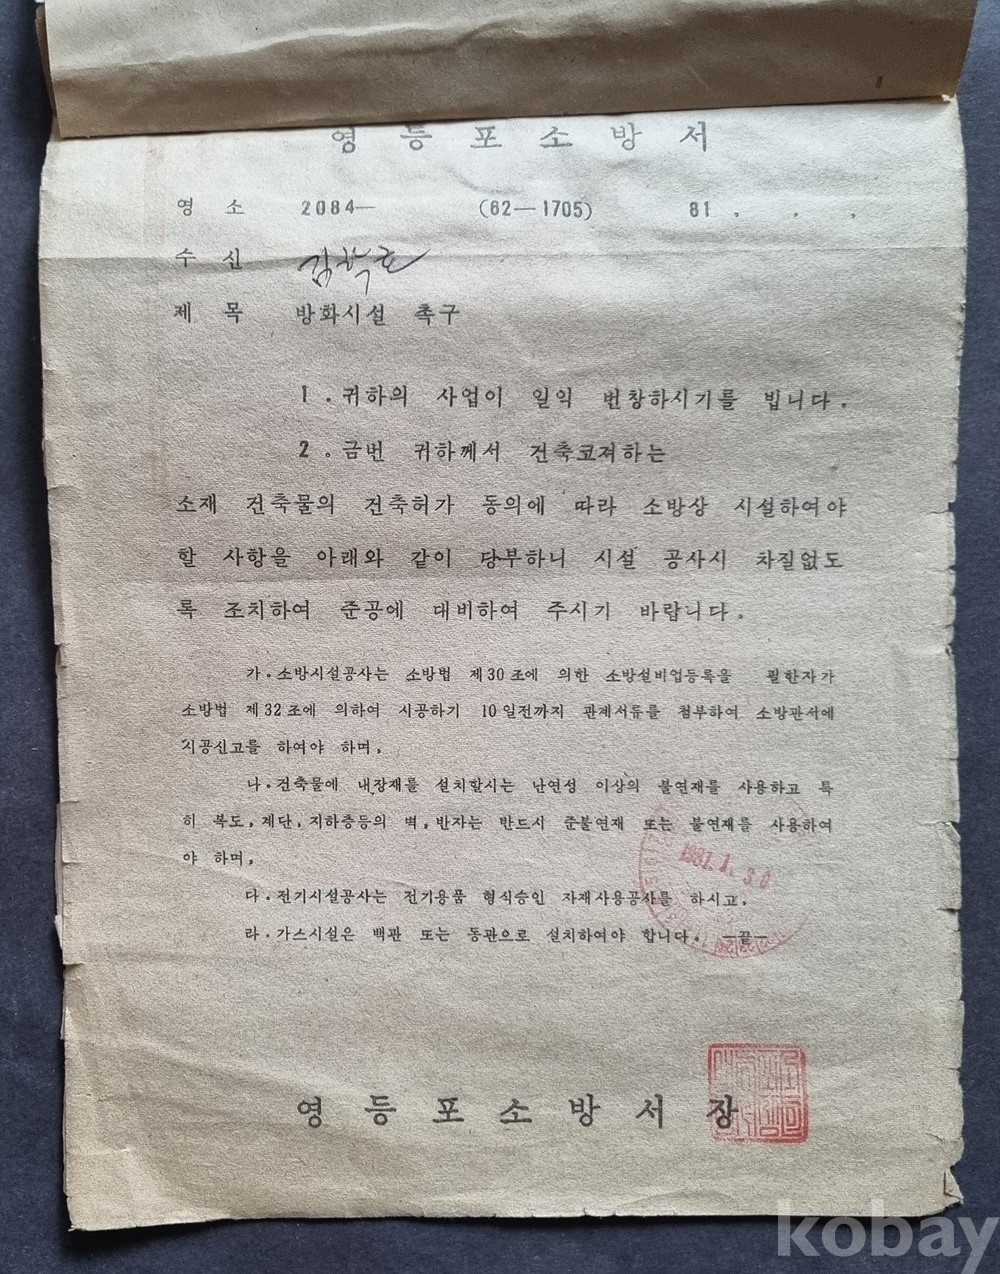 영 등 포 소 방 서
영 소 2084— (62—1705) 81 . . .
수 신 김학
제 목 방화시설 촉구
1. 귀하의 사업이 일익 번창하시기를 빕니다.
2. 금번 귀하께서 건축코져하는
소재 건축물의 건축허가 동의에 따라 소방상 시설하여야
할 사항을 아래와 같이 당부하니 시설 공사시 차질없도
록 조치하여 준공에 대비하여 주시기 바랍니다.
가. 소방시설공사는 소방법 제30조에 의한 소방설비업등록을 필한자가
소방법 제32조에 의하여 시공하기 10일전까지 관계서류를 첨부하여 소방관서에
시공신고를 하여야 하며,
나. 건축물에 내장재를 설치할시는 난연성 이상의 불연재를 사용하고 특
히 복도, 계단, 지하층등의 벽, 반자는 반드시 준불연재 또는 불연재를 사용하여
야 하며,
다. 전기시설공사는 전기용품 형식승인 자재사용공사를 하시고,
라. 가스시설은 백관 또는 동관으로 설치하여야 합니다. —끝—
1981. 1. 30
영 등 포 소 방 서 장
kobay